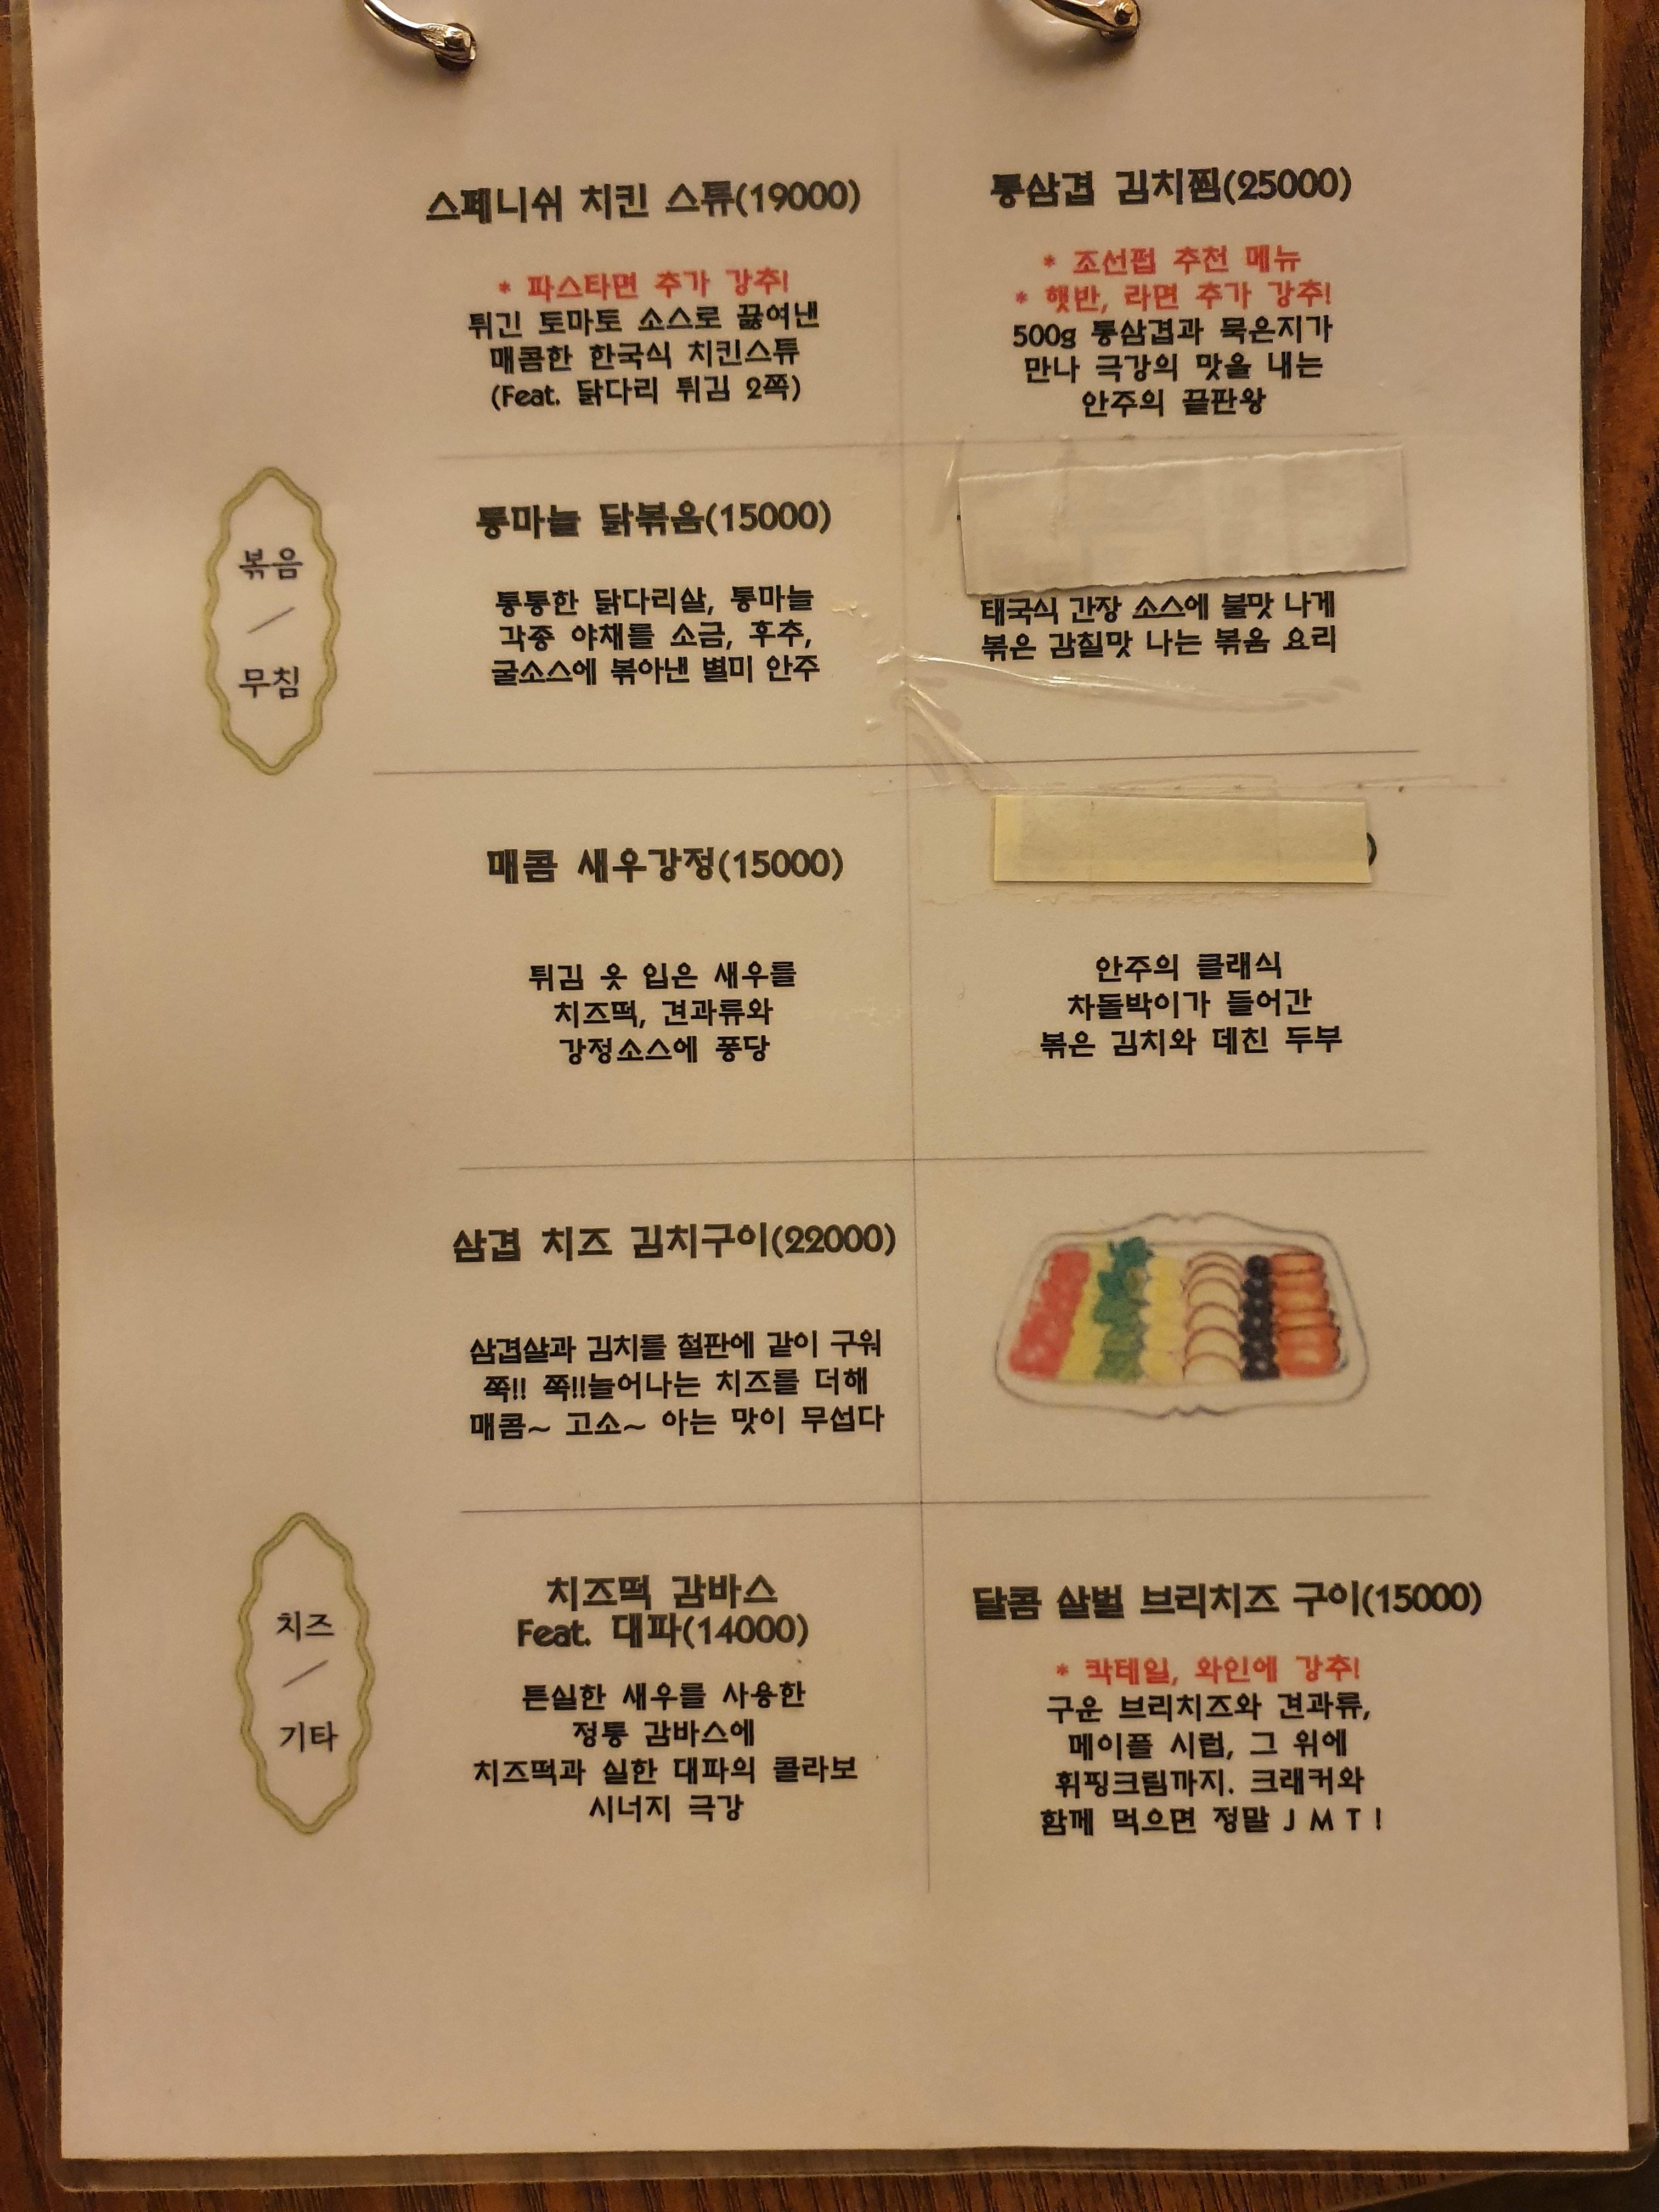 스페니쉬 치킨 스튜(19000)
* 파스타면 추가 강추!
튀긴 토마토 소스로 끓여낸
매콤한 한국식 치킨스튜
(Feat. 닭다리 튀김 2쪽)
통삼겹 김치찜(25000)
* 조선펍 추천 메뉴
* 햇반, 라면 추가 강추!
500g 통삼겹과 묵은지가
만나 극강의 맛을 내는
안주의 끝판왕
볶음
/
무침
통마늘 닭볶음(15000)
통통한 닭다리살, 통마늘
각종 야채를 소금, 후추,
굴소스에 볶아낸 별미 안주
태국식 간장 소스에 불맛 나게
볶은 감칠맛 나는 볶음 요리
매콤 새우강정(15000)
튀김 옷 입은 새우를
치즈떡, 견과류와
강정소스에 퐁당
)
안주의 클래식
차돌박이가 들어간
볶은 김치와 데친 두부
삼겹 치즈 김치구이(22000)
삼겹살과 김치를 철판에 같이 구워
쭉!! 쭉!!늘어나는 치즈를 더해
매콤~ 고소~ 아는 맛이 무섭다
치즈
/
기타
치즈떡 감바스
Feat. 대파(14000)
튼실한 새우를 사용한
정통 감바스에
치즈떡과 실한 대파의 콜라보
시너지 극강
달콤 살벌 브리치즈 구이(15000)
* 칵테일, 와인에 강추!
구운 브리치즈와 견과류,
메이플 시럽, 그 위에
휘핑크림까지. 크래커와
함께 먹으면 정말 J M T !